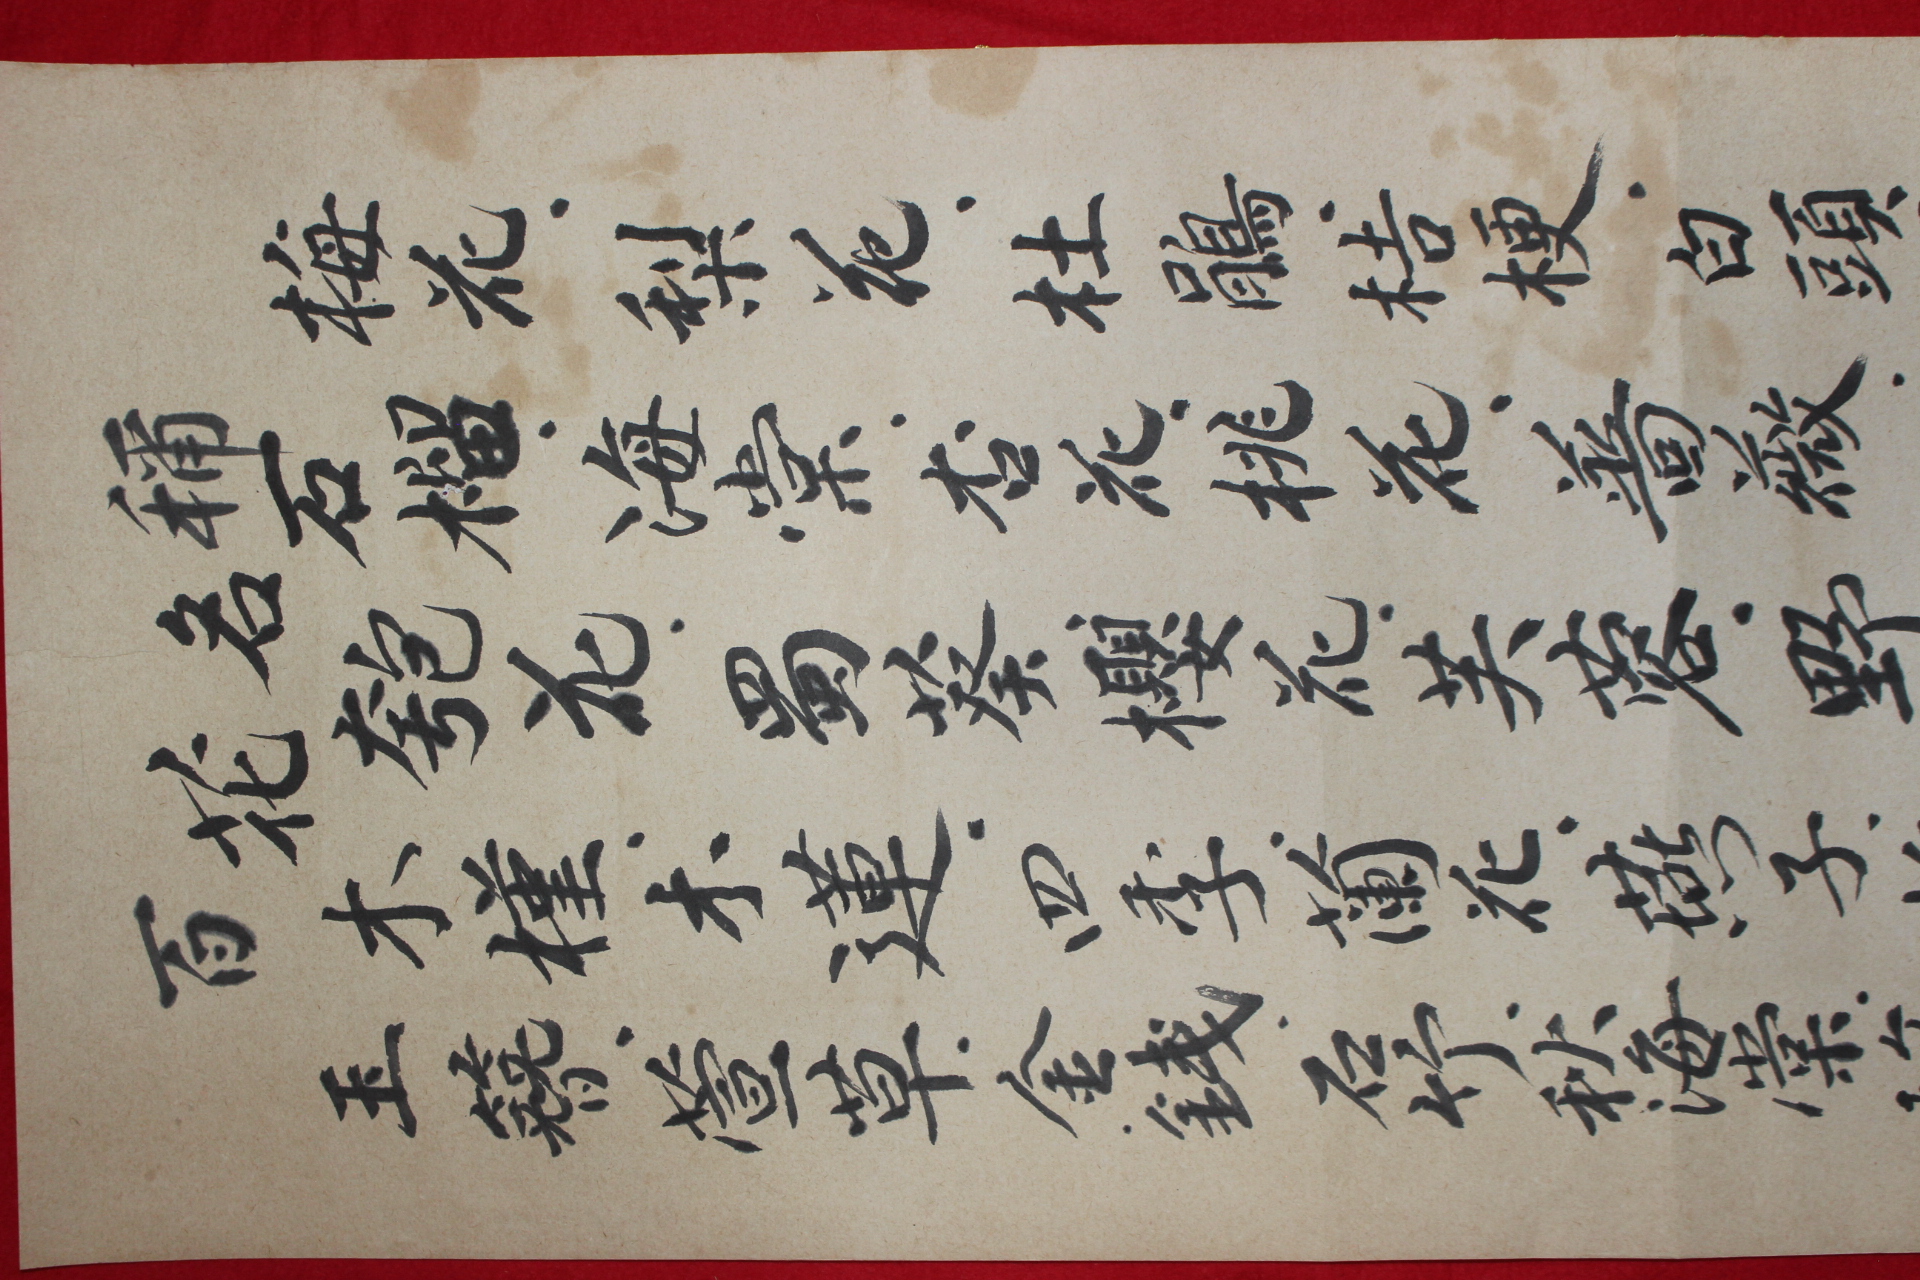 百花名稱
梅花·梨花·杜鵑·桔梗·白頭
石榴·海棠·杏花·桃花·薔薇·
匏花·蜀葵·櫻花·芙蓉·野
木槿·木蓮·四季·花·子·
玉簪·萱草·金錢·石竹·秋海棠·